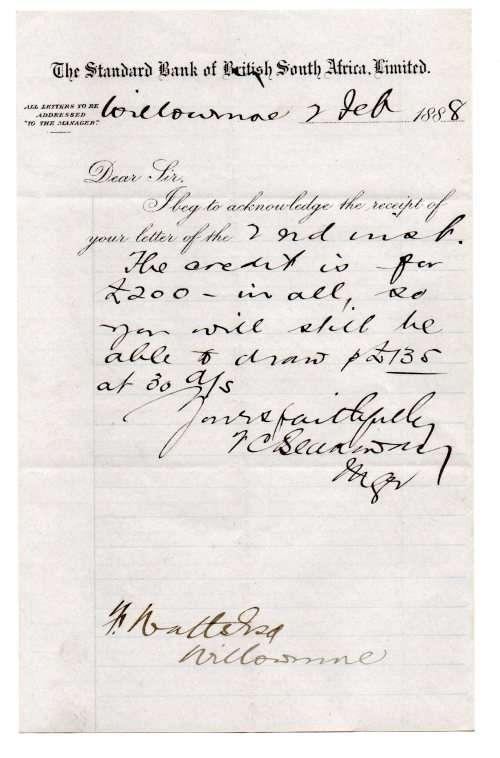 The Standard Bank of British South Africa, Limited.
ALL LETTERS TO BE
ADDRESSED
"TO THE MANAGER"
Willowmore 2 Feb 1888
Dear Sir,
I beg to acknowledge the receipt of
your letter of the 2nd inst.
The credit is for
£200 - in all, so
you will still be
able to draw p £135
at 30 d/s
Yours faithfully
Mgr
Watts Esq
Willowmore